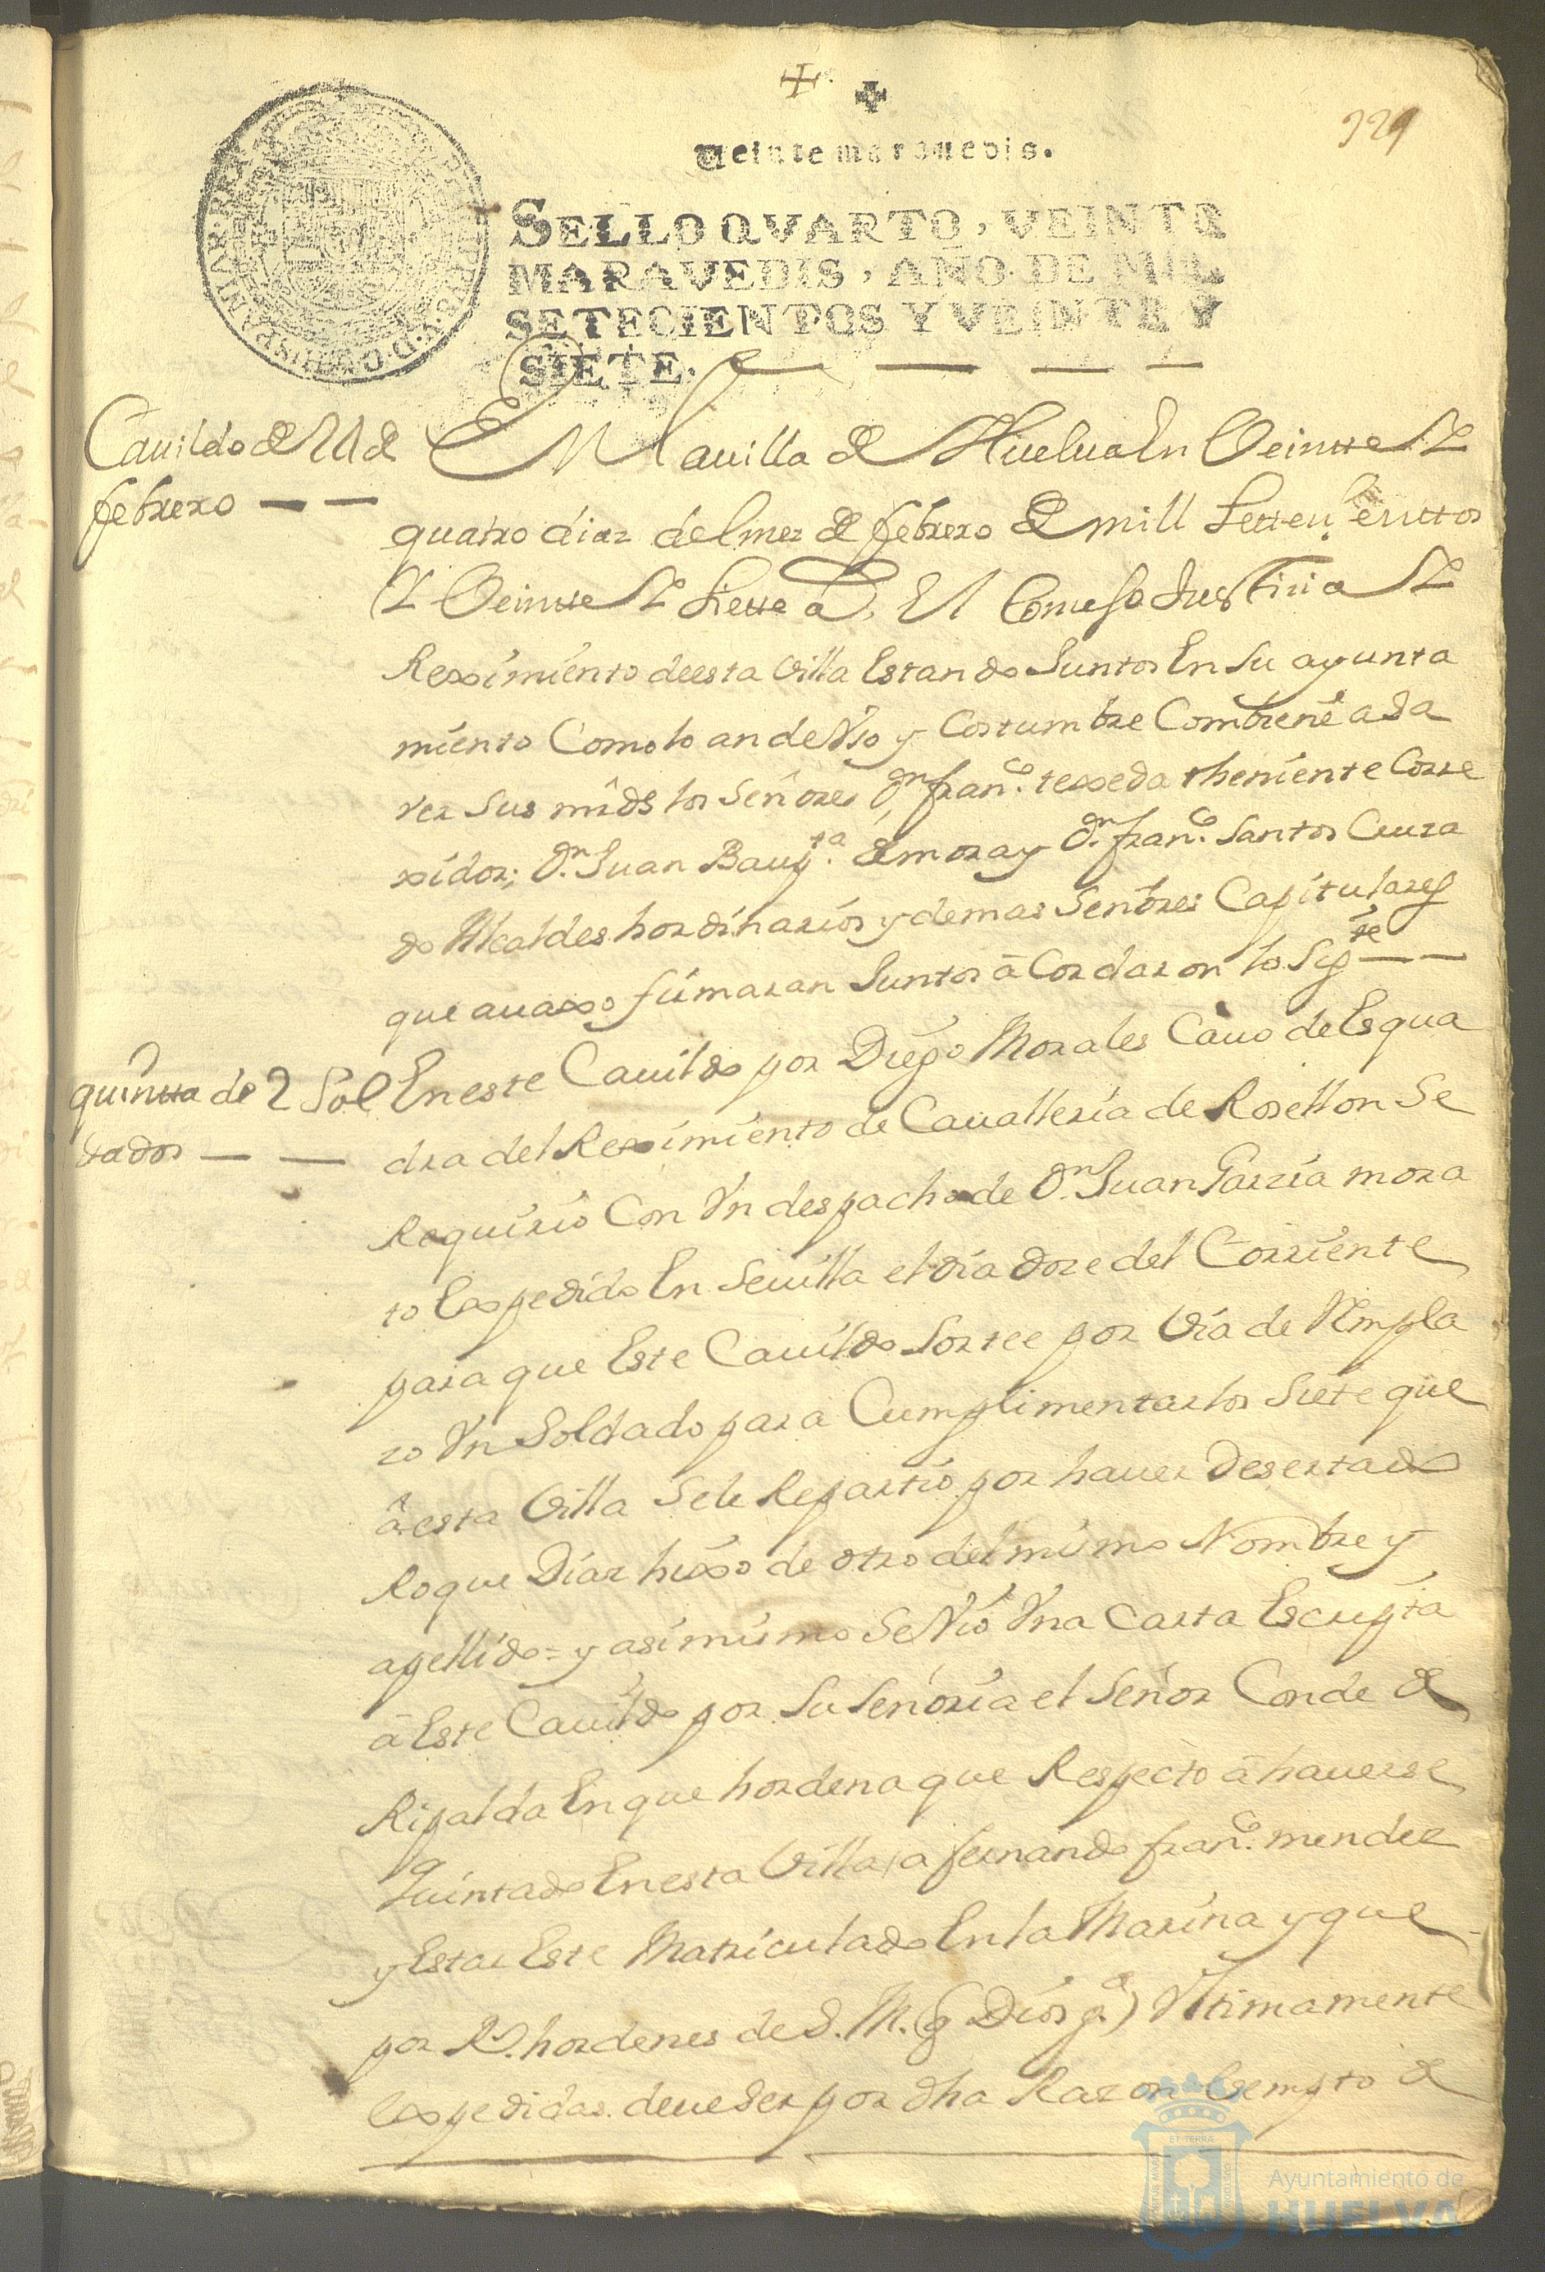 329
Veinte maravedis.
SELLO QVARTO, VEINTE
MARAVEDIS, AÑO DE MIL
SETECIENTOS Y VEINTE Y
SIETE.
Cauildo de 24 de
febrero
En la uilla de Huelua En Veintte Y
quatro diaz del mez de febrero de mill settezienttos
Y Veintte Y Siette a.s El Consejo Justizia Y
Reximiento de esta Villa Estando Juntos En Su ayunta
miento Como lo an de Vso y Costumbre Combiene a sa
ver Sus mrds los Señores Dn. franco. texeda theniente Corre
xidor; Dn. Juan Baupta. de mora y Dn. franco. Santos Cuza
do Alcaldes hordinarios y demas Señores Capitulares
que auaxo firmaran Juntos acordaron lo Sigte
quintta de 2 Sol
dados
En este Cauildo por Diego Morales Cauo de Esqua
dra del Reximiento de Cauallería de Rosellon Se
Requirio Con Vn despacho de Dn. Juan Garzia mora
to Expedido En Seuilla el día doze del Corriente
para que Este Cauildo Sortee por Vía de Rempla
zo Vn Soldado para Cumplimentar los Siete que
a esta Villa Se le Repartio por hauer Desertado
Roque Díaz hixo de otro del mismo Nombre y
apellido = y asimismo Se Vio Vna Carta Escripta
a Este Cauildo por Su Señoría el Señor Conde de
Ripalda En que hordena que Respecto a hauerse
quintado En esta Villa a fernando franco. mendez
y Estar Este Matriculado En la Marina y que
por Rs. hordenes de S. M. (q Dios ge.) Vltimamente
Expedidas deue Ser por dha Razon Exempto de
Ayuntamiento de
HUELVA